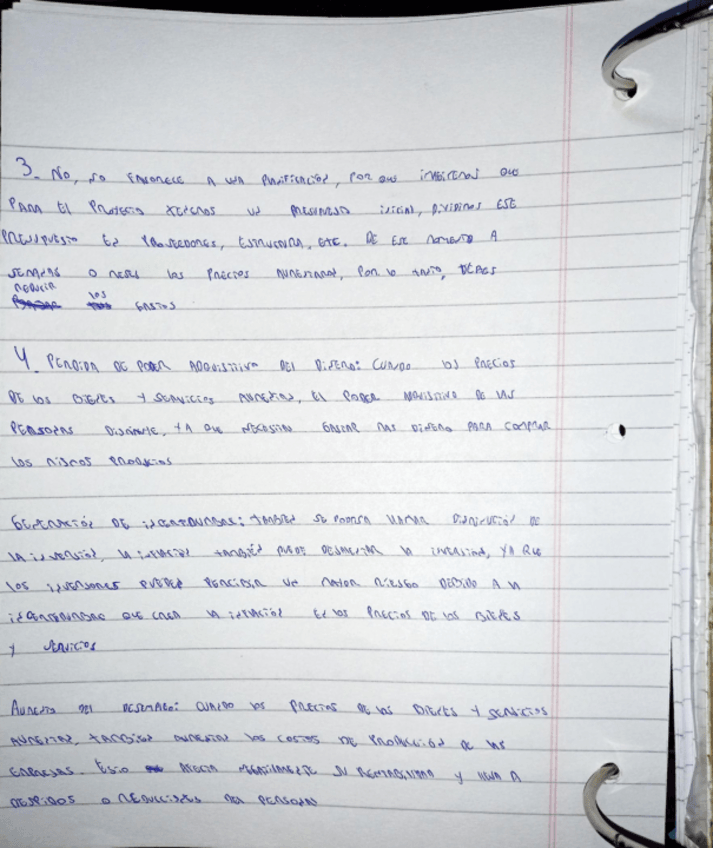 3. No, no favorece a una planificación, por que imaginemos que
para el proyecto tenemos un presupuesto inicial, dividimos ese
presupuesto en proveedores, estructura, etc. De ese momento a
semanas o meses los precios aumentaron, por lo tanto, debes
reducir los gastos
4. Perdida de poder adquisitivo del dinero: cuando los precios
de los bienes y servicios aumentan, el poder adquisitivo de las
personas disminuye, ya que necesitan gastar mas dinero para comprar
los mismos productos
Generación de incertidumbre: también se podría llamar disminución de
la inversión, la inflación también puede desalentar la inversión, ya que
los inversores pueden percibir un mayor riesgo debido a la
incertidumbre que crea la inflación en los precios de los bienes
y servicios
Aumento del desempleo: cuando los precios de los bienes y servicios
aumentan, también aumentan los costos de producción de las
empresas. Esto afecta negativamente su rentabilidad y lleva a
despidos o reducciones del personal